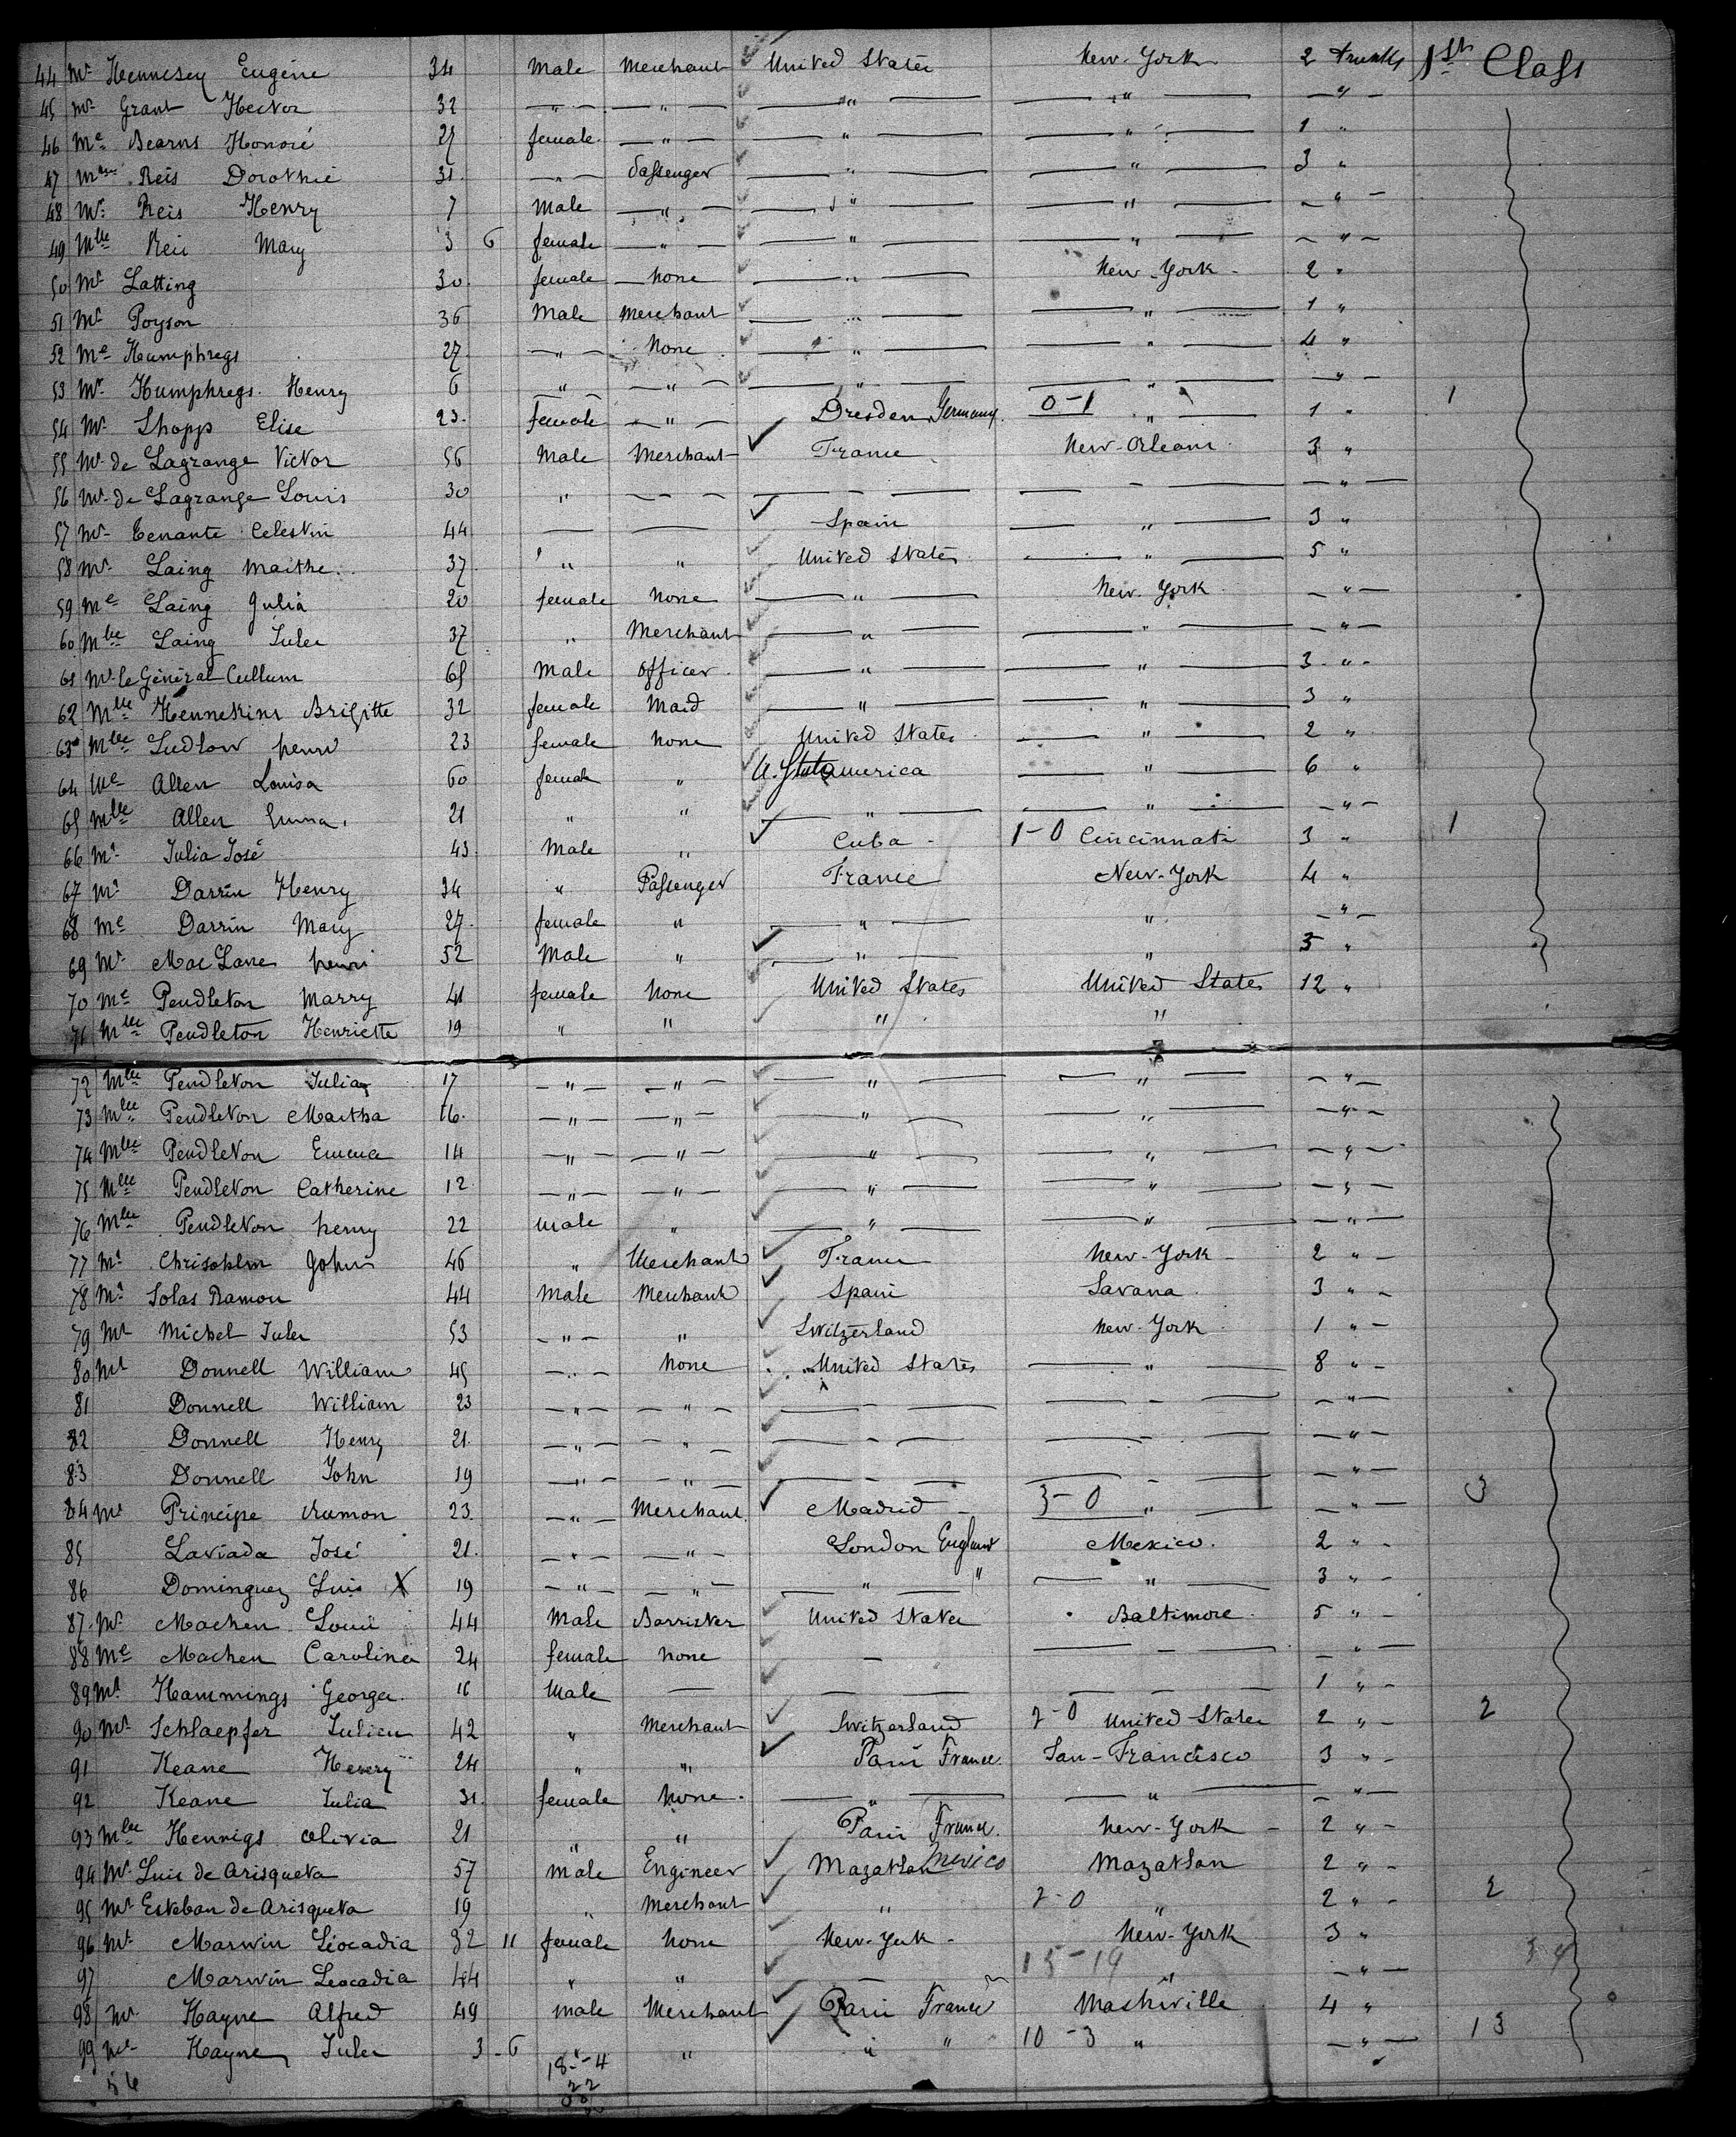 44 Mr Hennesey Eugène 34 Male Merchant United States New-York 2 trunks 1st Class
45 Mr Grant Hector 32 " " " " "
46 Me Bearns Honoré 27 female " " " 1 "
47 Mme Reis Dorothie 31 " Passenger " " 3 "
48 Mr Reis Henry 7 Male " " " "
49 Mlle Reis Mary 3 6 female " " " "
50 Mr Latting 30 female none " New-York 2 "
51 Mr Poyson 36 Male Merchant " " 1 "
52 Me Humphregs 27 " None " " 4 "
53 Mr Humphregs Henry 6 " " " " "
54 Mr Shopp Elise 23 female " Dresden Germany 0-1 " 1 " 1
55 Mr de Lagrange Victor 56 Male Merchant France New-Orleans 3 "
56 Mr de Lagrange Louis 30 " - - - "
57 Mr Tenante Celestin 44 Spain " 3 "
58 Mr Laing Maithe 37 " " United States " 5 "
59 Me Laing Julia 20 female none " New-York "
60 Mlle Laing Jules 37 " Merchant " " "
61 Mr le Général Cullum 68 Male officer " " 3 "
62 Mlle Hennekins Brigitte 32 female Maid " " 3 "
63 Mlle Ludlow henri 23 female none United States " 2 "
64 Me Allen Louisa 60 female " U. States america " 6 "
65 Mlle Allen Emma 21 " " " " "
66 Mr Julia José 43 Male " Cuba 1-0 Cincinnati 3 " 1
67 Mr Darrin Henry 34 " Passenger France New-York 4 "
68 Me Darrin Mary 27 female " " " "
69 Mr Mac Lane henri 52 Male " " " 5 "
70 Me Pendleton Marry 41 female none United States United States 12 "
71 Mlle Pendleton Henriette 19 " " " "
72 Mlle Pendleton Julia 17 " " " " "
73 Mlle Pendleton Martha 16 " " " " "
74 Mlle Pendleton Emma 14 " " " " "
75 Mlle Pendleton Catherine 12 " " " " "
76 Mlle Pendleton henry 22 male " " " "
77 Mr Chrisohlm John 46 " Merchant France New-York 2 "
78 Mr Solas Ramon 44 Male Merchant Spain Savana 3 "
79 Mr Michel Jules 53 " " Switzerland New-York 1 "
80 Mr Donnell William 45 " none United States " 8 "
81 Donnell William 23 " " - - "
82 Donnell Henry 21 " " - - "
83 Donnell John 19 " " - - "
84 Mr Principe Ramon 23 " Merchant Madrid 3-0 " " 3
85 Laviada José 21 " " London England Mexico 2 "
86 Dominguez Luis X 19 " " " " " 3 "
87 Mr Machen Louis 44 Male Barrister United States Baltimore 5 "
88 Me Machen Carolina 24 female none - - "
89 Mr Hammings George 16 Male - - - 1 "
90 Mr Schlaepfer Julien 42 " Merchant Switzerland 2-0 United States 2 " 2
91 Keane Henry 24 " " Paris France San-Francisco 3 "
92 Keane Julia 31 female none " " "
93 Mlle Hennigs Olivia 21 " " Paris France New-York 2 "
94 Mr Luis de Arisqueta 57 male Engineer Mazatlan Mexico Mazatlan 2 "
95 Mr Esteban de Arisqueta 19 " Merchant " 2-0 " 2 " 2
96 Mr Marwin Léocadia 32 11 female none New-York New-York 3 "
97 Marwin Leocadia 44 " " 15-19 " "
98 Mr Hayne Alfred 49 male Merchant Paris France Nashville 4 "
99 Mr Hayne Jules 3-6 " " " " 10-3 " " 13
56 18-4
22